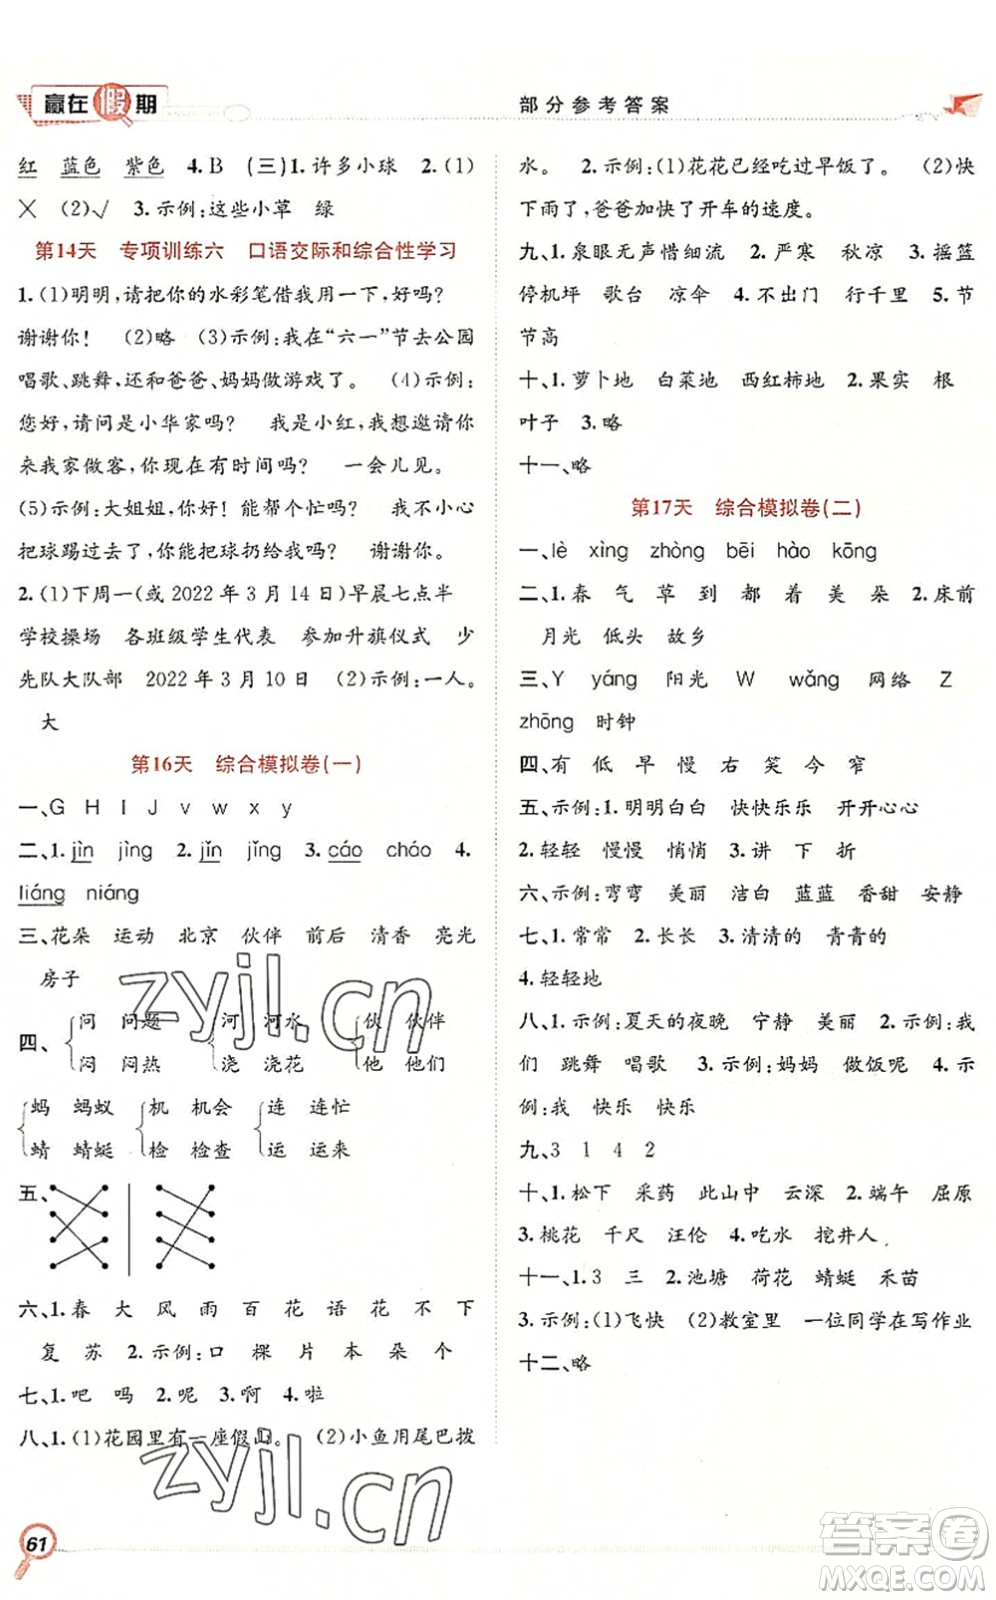 赢在假期
部分参考答案
红 蓝色 紫色 4.B (三)1.许多小球 2.(1)
✕ (2)√ 3.示例:这些小草 绿
第14天 专项训练六 口语交际和综合性学习
1.(1)明明,请把你的水彩笔借我用一下,好吗?
谢谢你! (2)略 (3)示例:我在“六一”节去公园
唱歌、跳舞,还和爸爸、妈妈做游戏了。 (4)示例:
您好,请问是小华家吗? 我是小红,我想邀请你
来我家做客,你有时间吗? 一会儿见。
(5)示例:大姐姐,你好!能帮个忙吗? 我不小心
把球踢过去了,你能把球扔给我吗? 谢谢你。
2.(1)下周一(或2022年3月14日)早晨七点半
学校操场 各班级学生代表 参加升旗仪式 少
先队大队部 2022年3月10日 (2)示例:一人。
大
第16天 综合模拟卷(一)
一、G H I J v w x y
二、1.jìn jìng 2.jǐn jǐng 3.cáo cháo 4.
liáng niáng
三、花朵 运动 北京 伙伴 前后 清香 亮光
房子
四、 问 问题 河 河水 伙 伙伴
闷 闷热 浇 浇花 他 他们
蚂 蚂蚁 机 机会 连 连忙
蜻 蜻蜓 检 检查 运 运来
五、
六、1.春 大 风 雨 百 花 语 花 不 下
复 苏 2.示例:口 棵 片 本 朵 个
七、1.吧 吗 2.呢 3.啊 4.啦
八、1.(1)花园里有一座假山。 (2)小鱼用尾巴拨
61
水。 2.示例:(1)花花已经吃过早饭了。 (2)快
下雨了,爸爸加快了开车的速度。
九、1.泉眼无声惜细流 2.严寒 秋凉 3.摇篮
停机坪 歌台 凉伞 4.不出门 行千里 5.节
节高
十、1.萝卜地 白菜地 西红柿地 2.果实 根
叶子 3.略
十一、略
第17天 综合模拟卷(二)
一、lè xìng zhòng bēi hào kōng
二、1.春 气 草 到 都 着 美 朵 2.床前
月光 低头 故乡
三、Y yáng 阳光 W wǎng 网络 Z
zhōng 时钟
四、有 低 早 慢 右 笑 今 窄
五、示例:1.明明白白 快快乐乐 开开心心
2.轻轻 慢慢 悄悄 3.讲 下 折
六、示例:弯弯 美丽 洁白 蓝蓝 香甜 安静
七、1.常常 2.长长 3.清清的 青青的
4.轻轻地
八、1.示例:夏天的夜晚 宁静 美丽 2.示例:我
们 跳舞 唱歌 3.示例:妈妈 做饭呢 4.示
例:我 快乐 快乐
九、3 1 4 2
十、1.松下 采药 此山中 云深 2.端午 屈原
3.桃花 千尺 汪伦 4.吃水 挖井人
十一、1.3 三 2.池塘 荷花 蜻蜓 禾苗
3.示例:(1)飞快 (2)教室里 一位同学在写作业
十二、略
zyjl.cn
zyjl.cn
答案圈
MXQE.COM